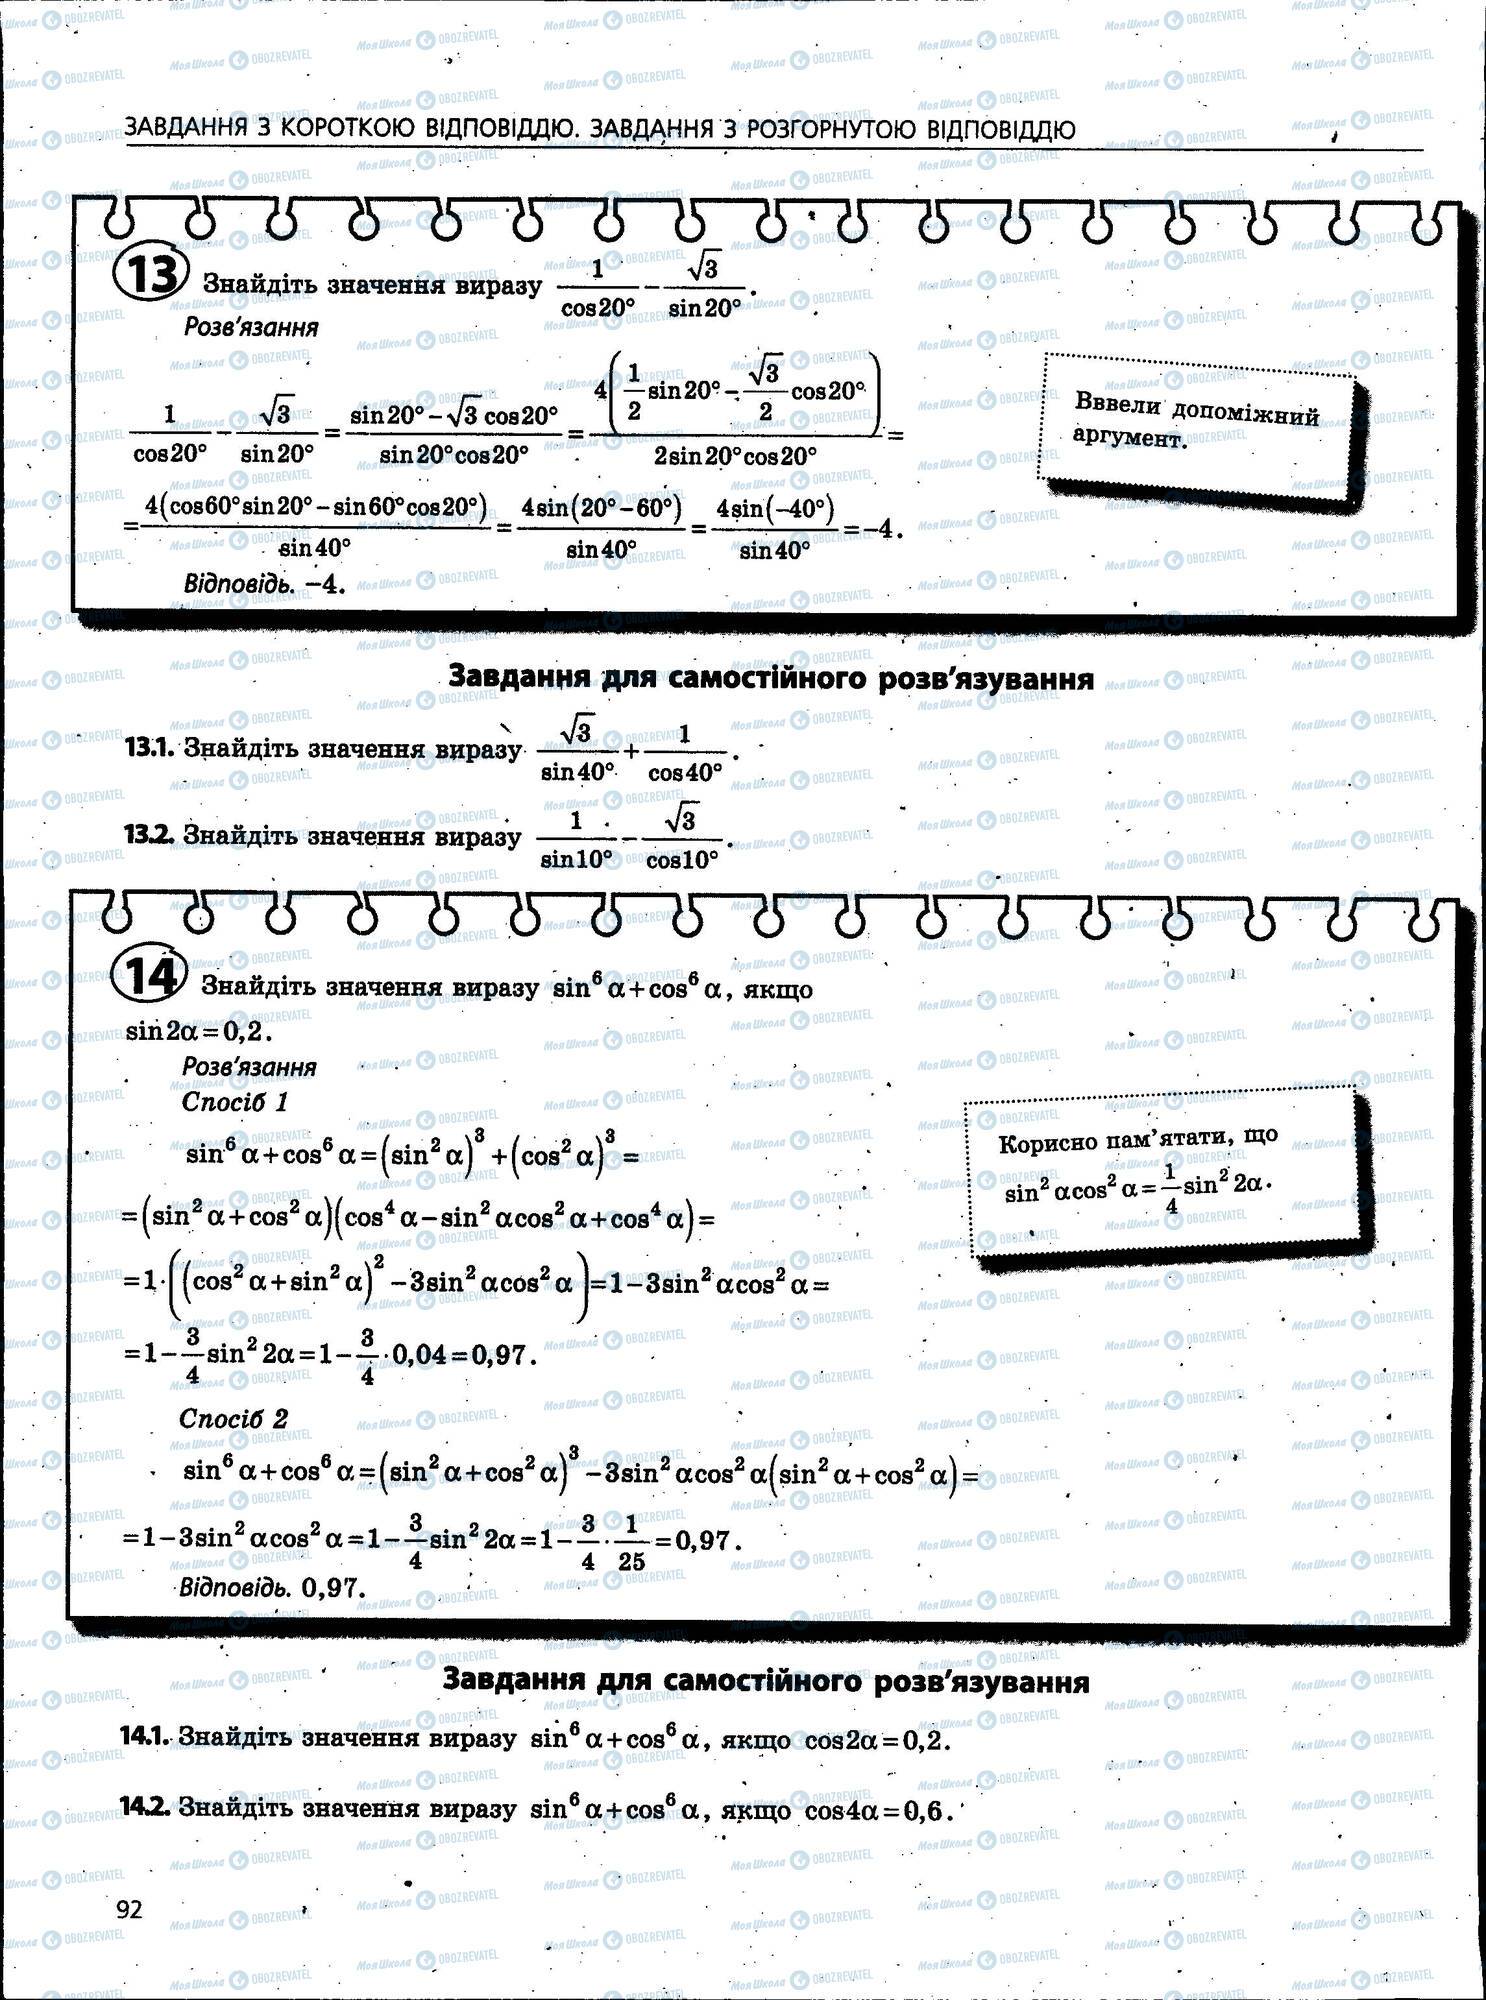 ЗАВДАННЯ З КОРОТКОЮ ВІДПОВІДДЮ. ЗАВДАННЯ З РОЗГОРНУТОЮ ВІДПОВІДДЮ
13 Знайдіть значення виразу 1/cos20° − √3/sin20°.
Розв'язання
1/cos20° − √3/sin20° = (sin20° − √3 cos20°)/(sin20°cos20°) = 4(1/2 sin20° − √3/2 cos20°)/(2sin20°cos20°) =
= 4(cos60°sin20° − sin60°cos20°)/sin40° = 4sin(20°−60°)/sin40° = 4sin(−40°)/sin40° = −4.
Відповідь. −4.
Вввели допоміжний
аргумент.
Завдання для самостійного розв'язування
13.1. Знайдіть значення виразу √3/sin40° + 1/cos40°.
13.2. Знайдіть значення виразу 1/sin10° − √3/cos10°.
14 Знайдіть значення виразу sin⁶α + cos⁶α, якщо
sin2α = 0,2.
Розв'язання
Спосіб 1
sin⁶α + cos⁶α = (sin²α)³ + (cos²α)³ =
= (sin²α + cos²α)(cos⁴α − sin²αcos²α + cos⁴α) =
= 1·((cos²α + sin²α)² − 3sin²αcos²α) = 1 − 3sin²αcos²α =
= 1 − 3/4 sin²2α = 1 − 3/4 · 0,04 = 0,97.
Корисно пам'ятати, що
sin²αcos²α = 1/4 sin²2α.
Спосіб 2
sin⁶α + cos⁶α = (sin²α + cos²α)³ − 3sin²αcos²α(sin²α + cos²α) =
= 1 − 3sin²αcos²α = 1 − 3/4 sin²2α = 1 − 3/4 · 1/25 = 0,97.
Відповідь. 0,97.
Завдання для самостійного розв'язування
14.1. Знайдіть значення виразу sin⁶α + cos⁶α, якщо cos2α = 0,2.
14.2. Знайдіть значення виразу sin⁶α + cos⁶α, якщо cos4α = 0,6.
92
Моя Школа OBOZREVATEL